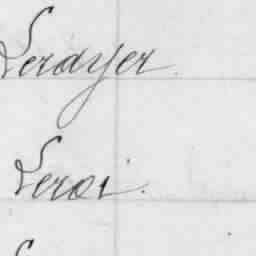 Lerayer.
Leroi.